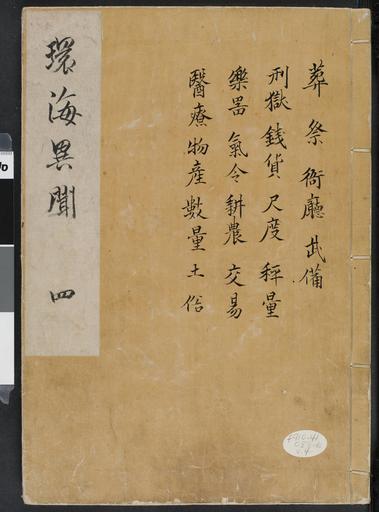 葬祭衙廳武備
刑獄錢貨尺度秤量
樂器氣令耕農交易
醫療物産數量土俗
環海異聞 四